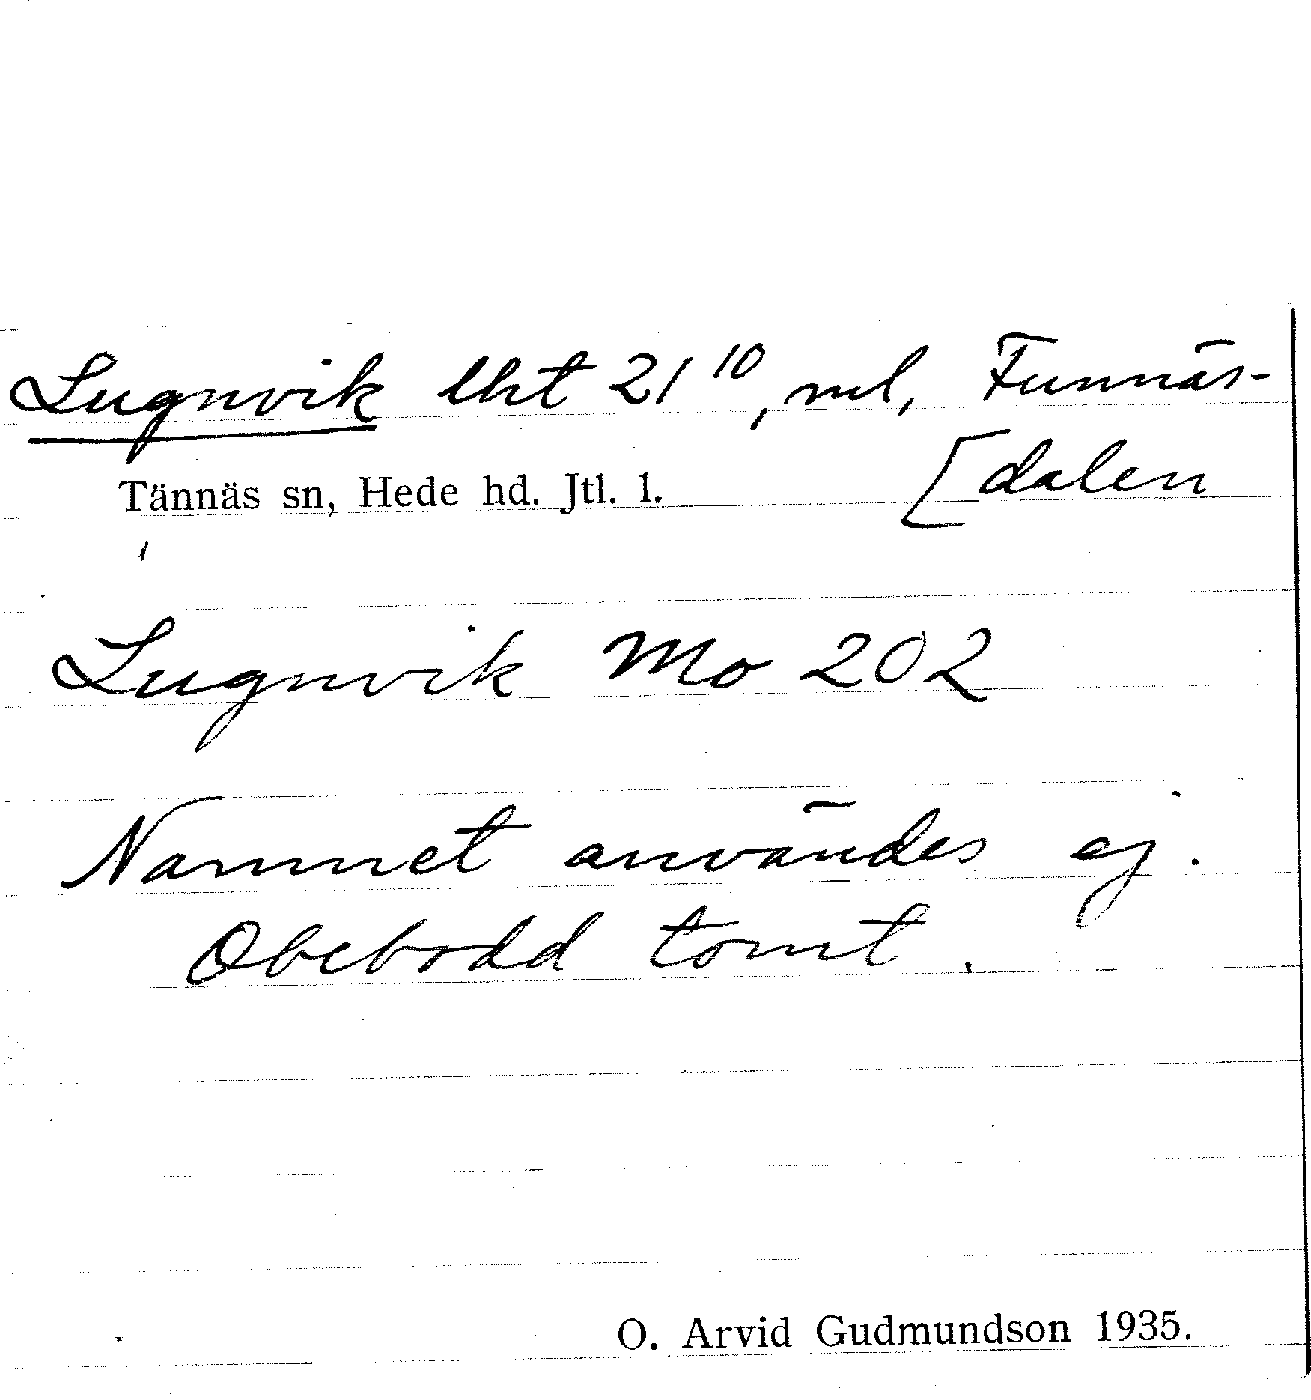 Lugnvik lht 21¹⁰, nul, Funnäs-
[dalen
Tännäs sn, Hede hd. Jtl. l.
Lugnvik Mo 202
Namnet användes ej.
Obebodd tomt.
O. Arvid Gudmundson 1935.